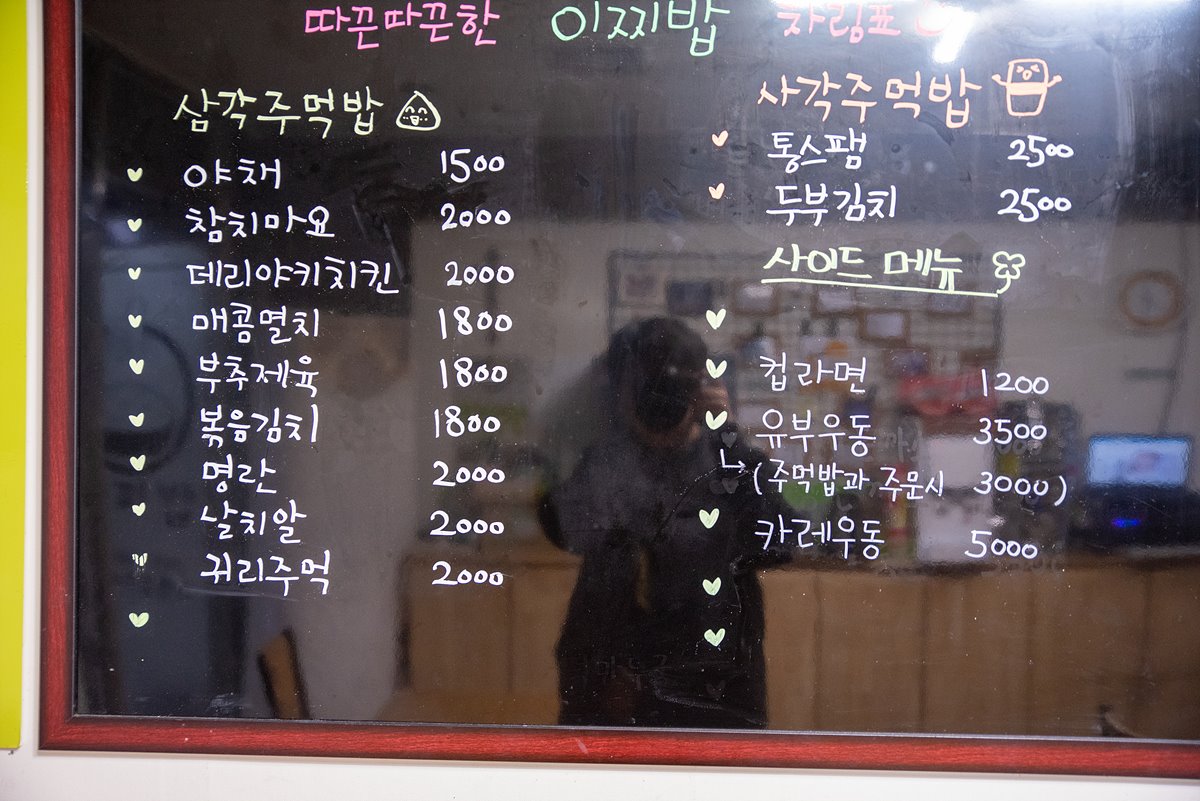 따끈따끈한 이찌밥 차림표
삼각주먹밥
야채 1500
참치마요 2000
데리야키치킨 2000
매콤멸치 1800
부추제육 1800
볶음김치 1800
명란 2000
날치알 2000
귀리주먹 2000
사각주먹밥
통스팸 2500
두부김치 2500
사이드 메뉴
컵라면 1200
유부우동 3500
(주먹밥과 주문시 3000)
카레우동 5000